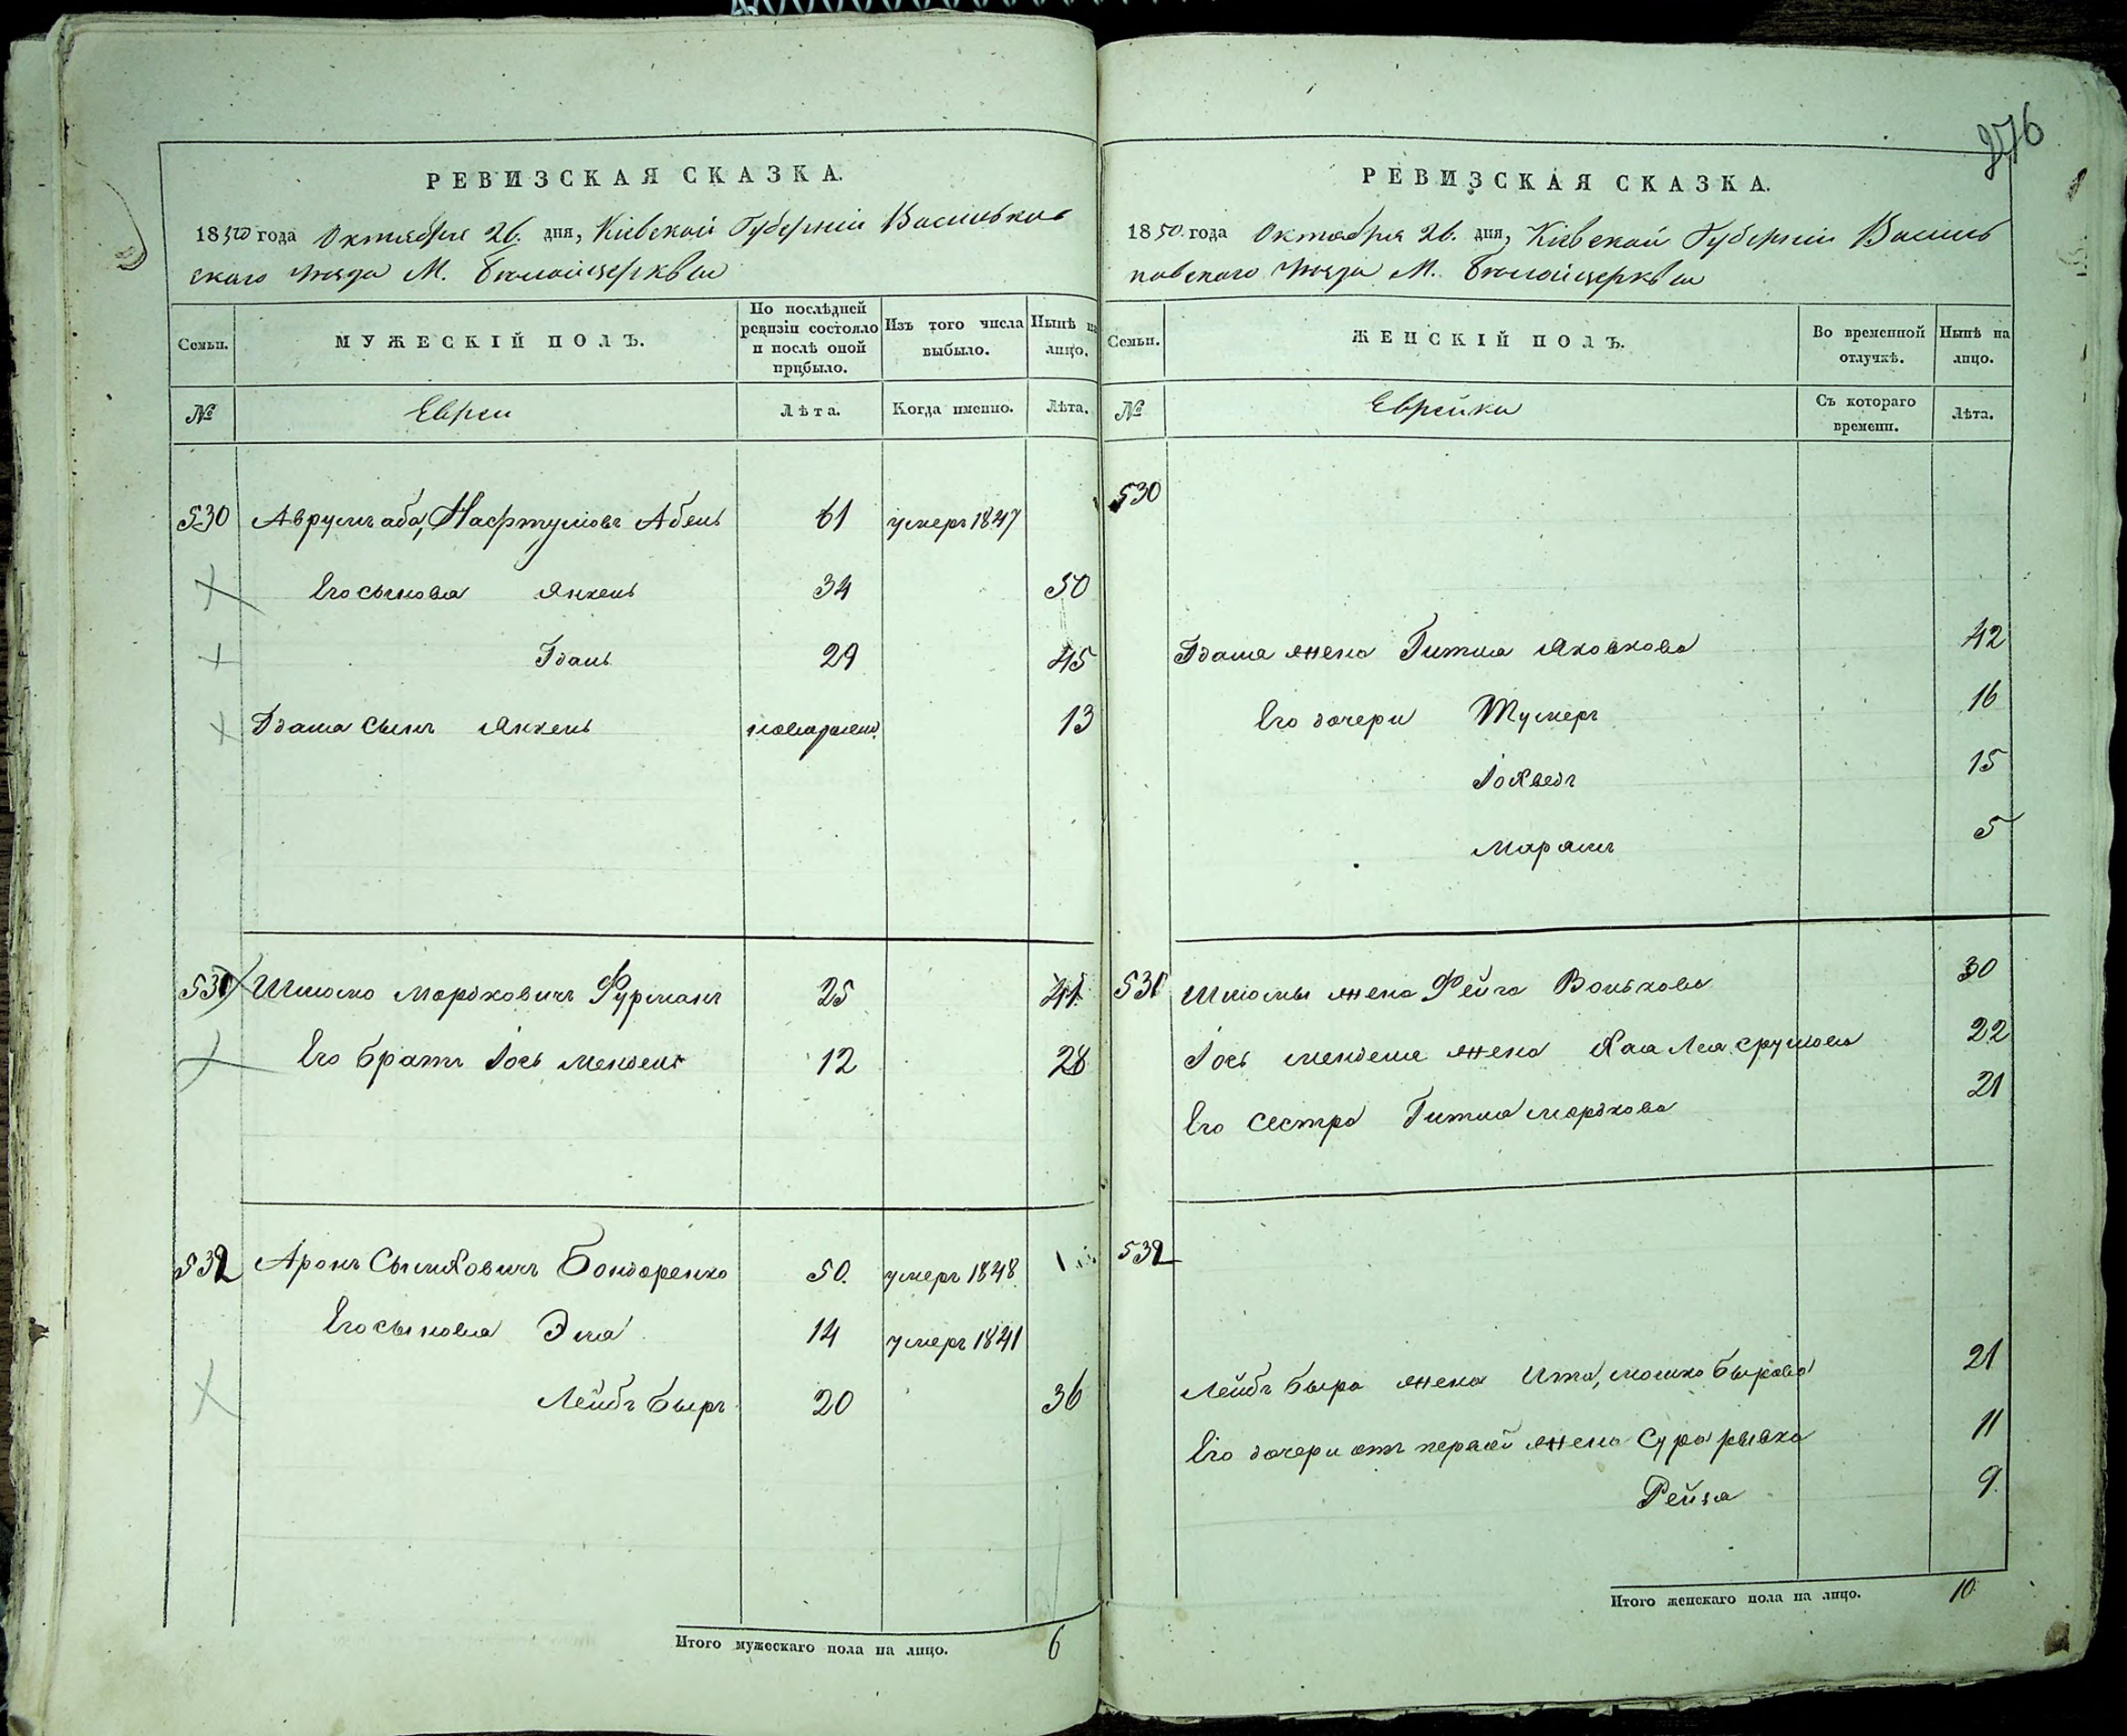 276
РЕВИЗСКАЯ СКАЗКА.
1850 года Октября 26. дня, Кіевской Губерніи Васильков
скаго уезда М. Белойцеркви
Семьи.
МУЖЕСКІЙ ПОЛЪ.
По послѣдней ревизіи состояло и послѣ оной прибыло.
Изъ того числа выбыло.
Нынѣ на лицо.
№
Евреи
Лѣта.
Когда именно.
Лѣта.
530 Аврумъ аба, Нафтуловъ 61 умеръ 1847
Его сыновья Янкель 34 50
Гдаль 29 45
Гдаля сынъ Янкель новорожден. 13
531 Шлиомо Мордковичъ Фурманъ 25 41
Его братъ Іось Мендель 12 28
532 Аронъ Сымховичъ Бондаренко 50. умеръ 1848
Его сыновья Эля 14 умеръ 1841
Лейбъ Быръ 20 36
Итого мужескаго пола на лицо. 6
РЕВИЗСКАЯ СКАЗКА.
1850. года Октября 26. дня, Кіевской Губерніи Василь
ковскаго уезда М. Белойцеркви
Семьи.
ЖЕНСКІЙ ПОЛЪ.
Во временной отлучкѣ.
Нынѣ на лицо.
№
Еврейки
Съ котораго времени.
Лѣта.
530
Гдаля жена Гитля Яковкова 42
Его дочери Тумеръ 16
Іохведъ 15
Марямъ 5
531 Шлиомы жена Фейга Волькова 30
Іось Менделя жена Хая Лея Срулова 22
Его сестра Гитля Мордкова 21
532
Лейбъ Быра жена Ита, Мошко Бырова 21
Его дочери отъ первой жены Сура рывка 11
Рейза 9.
Итого женскаго пола на лицо. 10